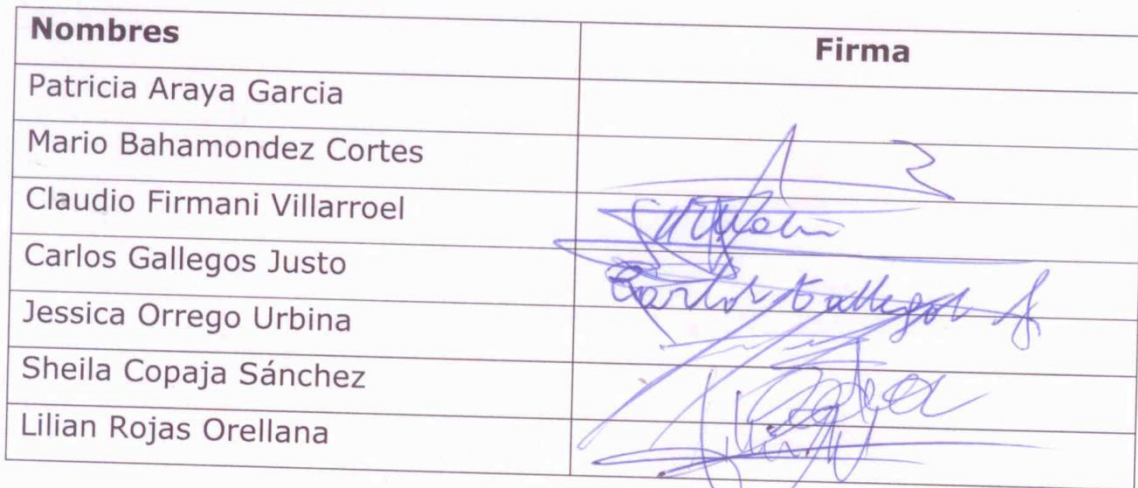 Nombres Firma
Patricia Araya Garcia
Mario Bahamondez Cortes
Claudio Firmani Villarroel
Carlos Gallegos Justo Carlos Gallegos J
Jessica Orrego Urbina
Sheila Copaja Sánchez
Lilian Rojas Orellana